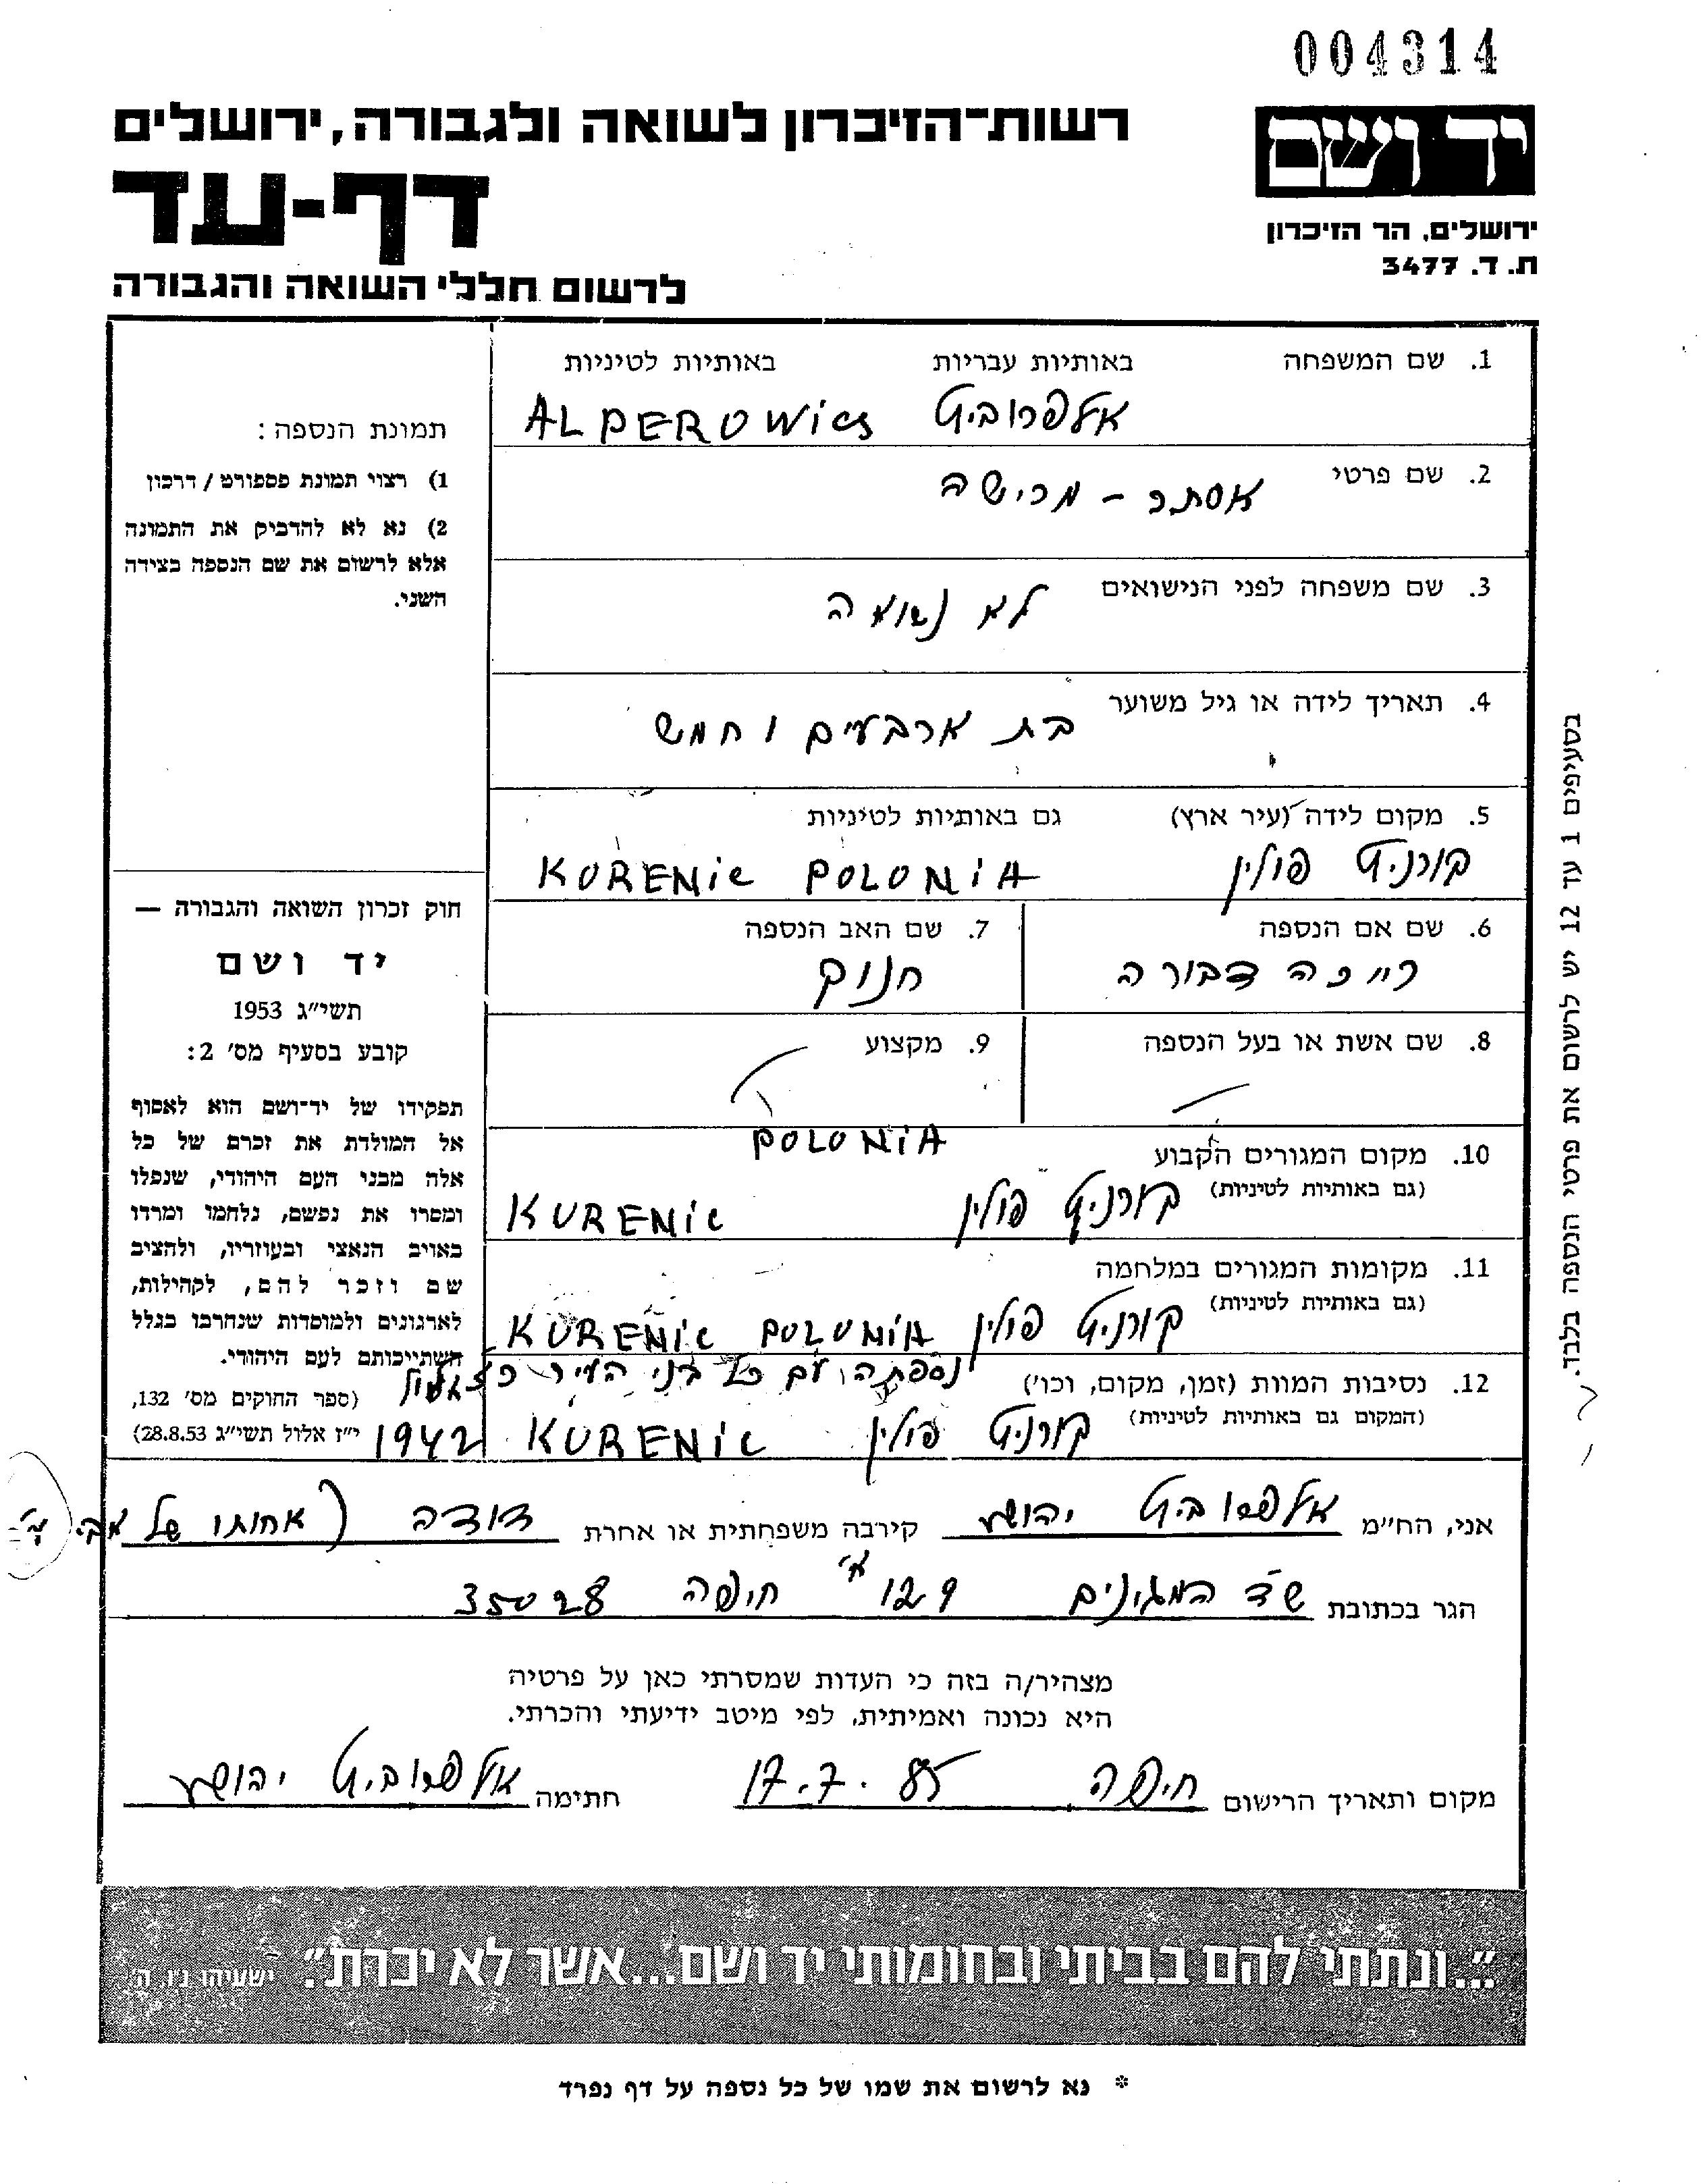 004314
יד ושם
רשות־הזיכרון לשואה ולגבורה, ירושלים
דף-עד
ירושלים, הר הזיכרון
ת. ד. 3477
לרשום חללי השואה והגבורה
1. שם המשפחה באותיות עבריות באותיות לטיניות
אלפרוביץ ALPEROWics
2. שם פרטי אסתר - מרישה
3. שם משפחה לפני הנישואים לא נשואה
4. תאריך לידה או גיל משוער בת ארבעים וחמש
5. מקום לידה (עיר ארץ) גם באותיות לטיניות
קורניץ פולין KURENic POLONiA
6. שם אם הנספה
דבורה
7. שם האב הנספה
חנוק
8. שם אשת או בעל הנספה
9. מקצוע
10. מקום המגורים הקבוע POLONiA
(גם באותיות לטיניות) קורניץ פולין KURENic
11. מקומות המגורים במלחמה
(גם באותיות לטיניות) קורניץ פולין KURENic POLONiA
12. נסיבות המוות (זמן, מקום, וכו') נספתה עם כל בני העיר כז אלול
(המקום גם באותיות לטיניות) קורניץ פולין KURENic 1942
תמונת הנספה:
1) רצוי תמונת פספורט / דרכון
2) נא לא להדביק את התמונה
אלא לרשום את שם הנספה בצידה
השני.
חוק זכרון השואה והגבורה —
יד ושם
תשי״ג 1953
קובע בסעיף מס׳ 2:
תפקידו של יד־ושם הוא לאסוף
אל המולדת את זכרם של כל
אלה מבני העם היהודי, שנפלו
ומסרו את נפשם, נלחמו ומרדו
באויב הנאצי ובעוזריו, ולהציב
שם וזכר להם, לקהילות,
לארגונים ולמוסדות שנחרבו בגלל
השתייכותם לעם היהודי.
(ספר החוקים מס׳ 132,
י״ז אלול תשי״ג 28.8.53)
בסעיפים 1 עד 12 יש לרשום את פרטי הנספה בלבד.
אני, הח״מ אלפרוביץ יהושע קירבה משפחתית או אחרת דודה (אחותו של אבי
הגר בכתובת שד המגינים 129 א' חיפה 35028
מצהיר/ה בזה כי העדות שמסרתי כאן על פרטיה
היא נכונה ואמיתית, לפי מיטב ידיעתי והכרתי.
מקום ותאריך הרישום חיפה 17.7.85 חתימה אלפרוביץ יהושע
"...ונתתי להם בביתי ובחומותי יד ושם...אשר לא יכרת". ישעיהו נ״ו, ה׳
* נא לרשום את שמו של כל נספה על דף נפרד